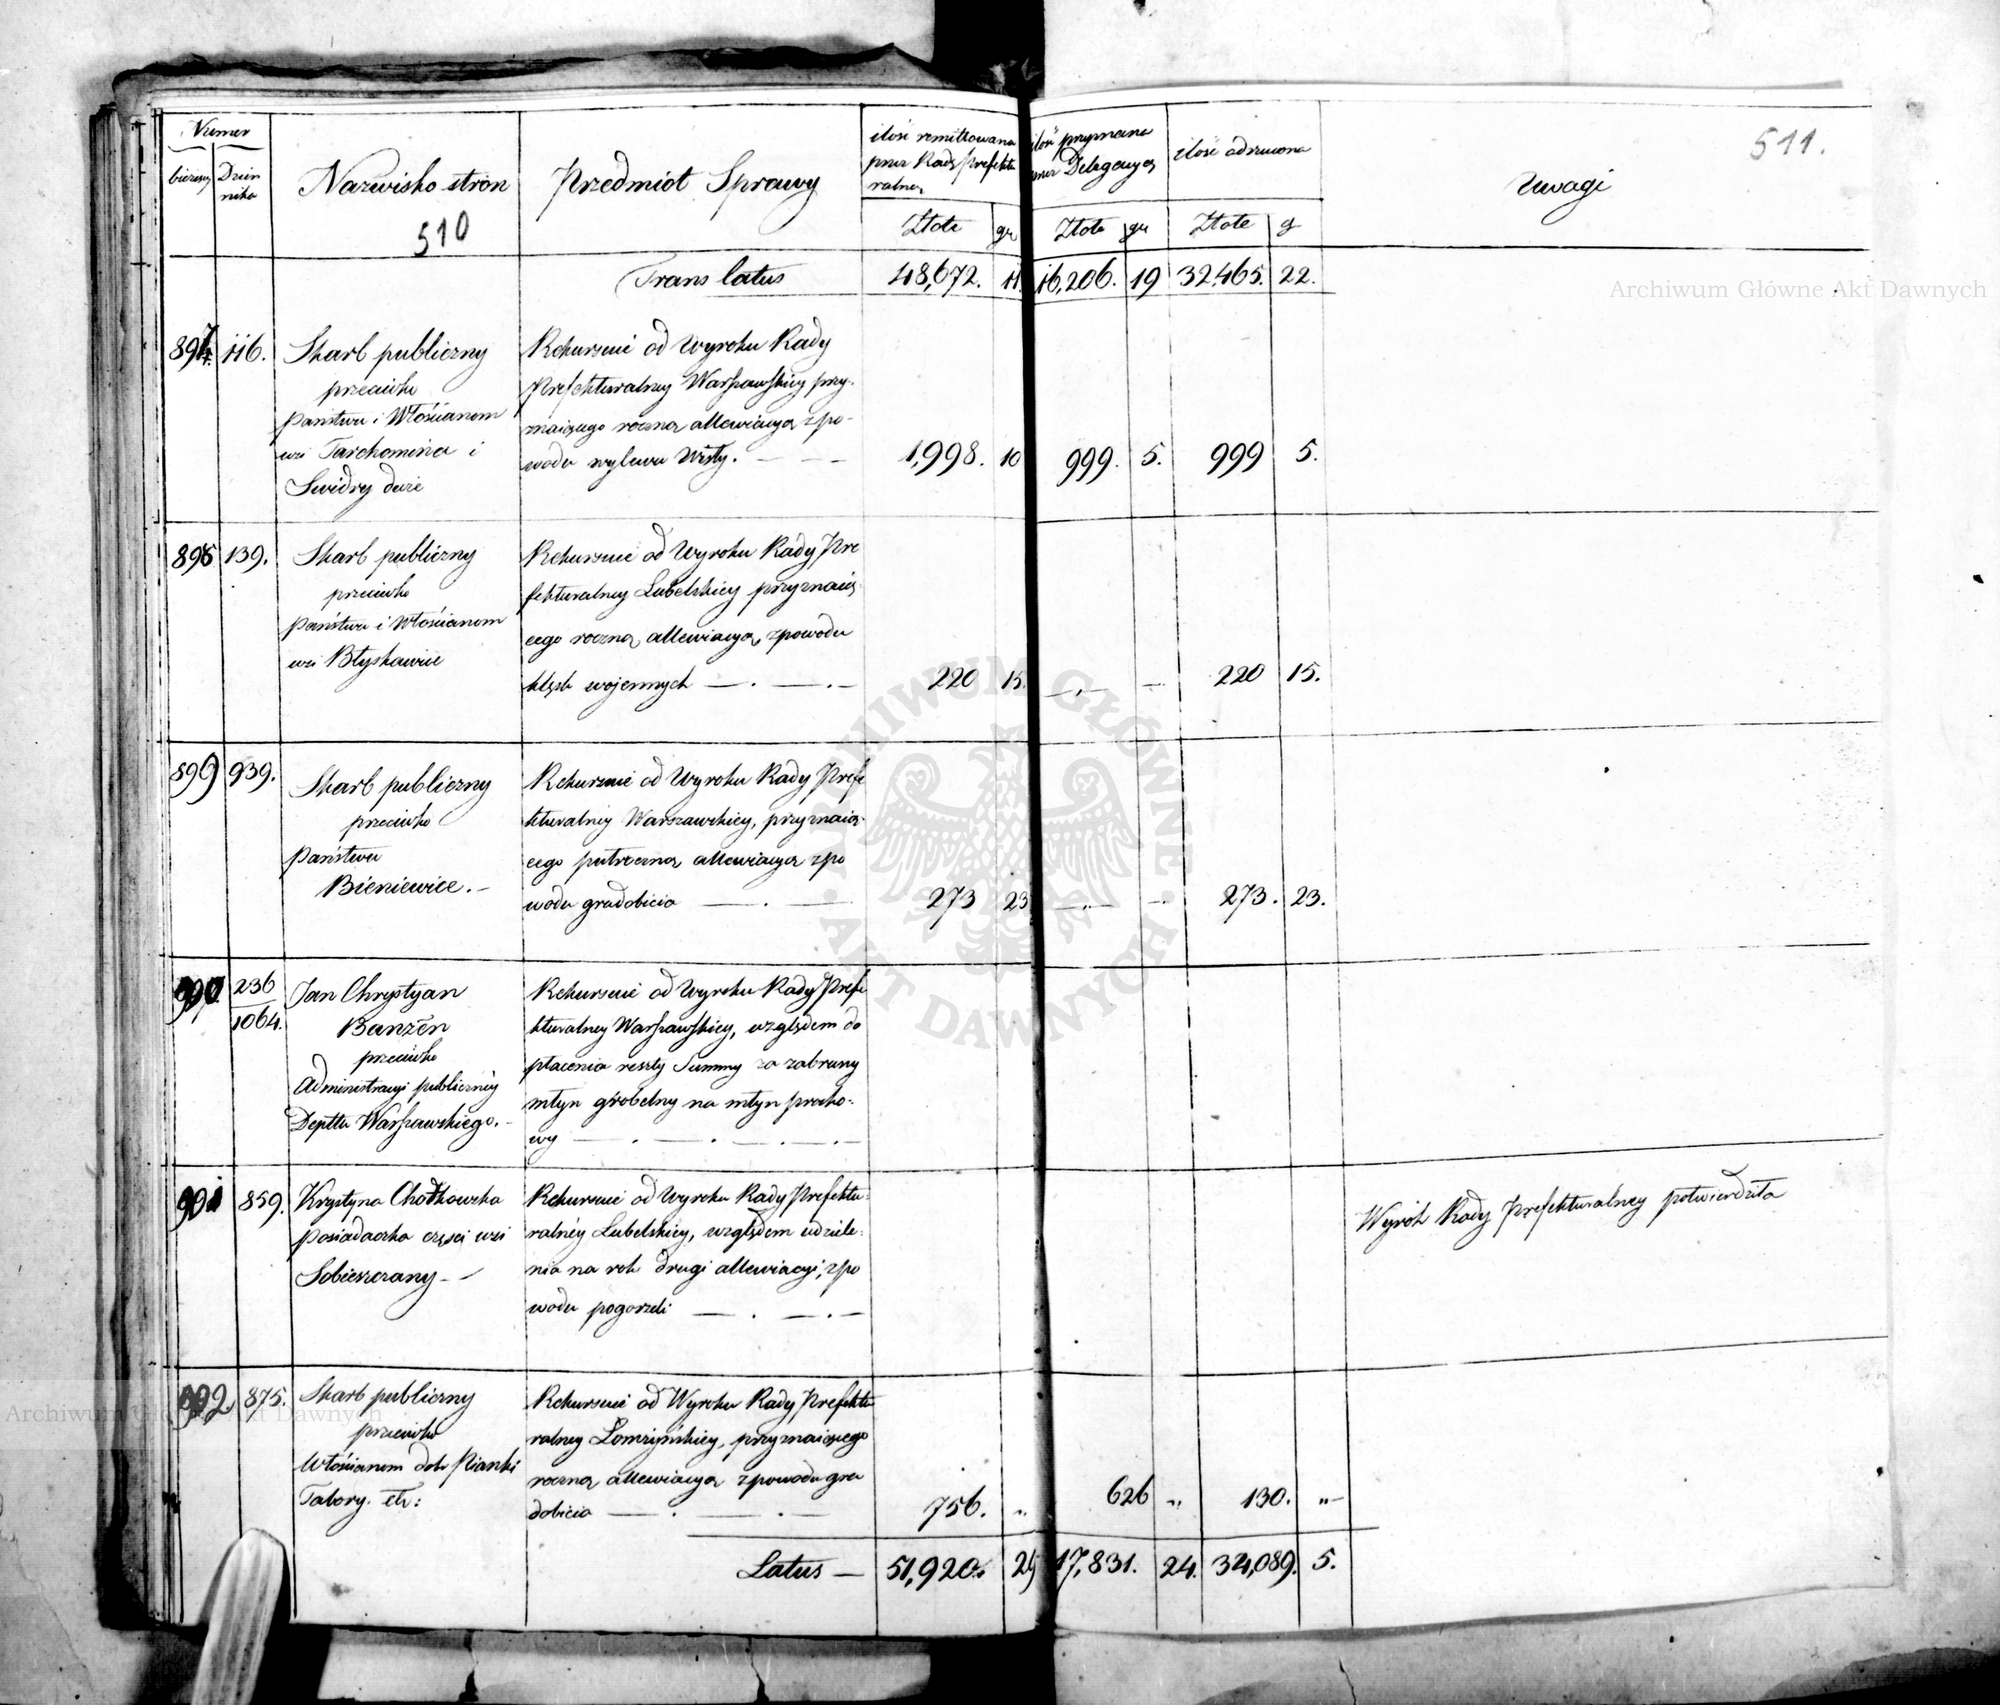 Numer
bieżący Dzien
nika
Nazwisko stron
510
Przedmiot Sprawy
ilość remittowana
przez Radę Prefektu
ralną
Złote gr
ilość przyznana
przez Delegacyą
Złote gr
ilość odrzucona
Złote g
Uwagi
511.
Translatus 48,672. 11. 16,206. 19 32,465. 22.
Archiwum Główne Akt Dawnych
897 116. Skarb publiczny
przeciwko
Państwu i Włościanom
wsi Tarchomina i
Swidry duże
Rekursuie od Wyroku Rady
Prefekturalney Warszawskiey przy-
znaiącego roczną allewiacyą z po-
wodu wylewu Wisły. 1,998. 10 999. 5. 999 5.
898 139. Skarb publiczny
przeciwko
Państwu i Włościanom
wsi Błyskawice
Rekursuie od Wyroku Rady Pre
fekturalney Lubelskiey przyznaią
cego roczną allewiacyą z powodu
klęsk wojennych 220 15. 220 15.
899 939. Skarb publiczny
przeciwko
Państwu
Bieniewice.
Rekursuie od Wyroku Rady Prefe
kturalney Warszawskiey, przyznaią-
cego putroczną allewiacyą z po
wodu gradobicia 273 23 273. 23.
236
1064.
Jan Chrystyan
Banzen
przeciwko
Administracyi publiczney
Depttu Warszawskiego.
Rekursuie od Wyroku Rady Prefe
kturalney Warszawskiey, względem do
płacenia reszty Summy za zabrany
młyn grobelny na młyn procho-
wy
901 859. Krystyna Chotkowska
posiadaczka części wsi
Sobieszczany
Rekursuie od Wyroku Rady Prefektu-
ralney Lubelskiey, względem udziele-
nia na rok drugi allewiacyi, z po
wodu pogorzeli
Wyrok Rady Prefekturalney potwierdziła
902 875. Skarb publiczny
przeciwko
Włościanom dóbr Pianki
Tabory. etc:
Rekursuie od Wyroku Rady Prefektu
ralney Łomżyńskiey, przyznaiącego
roczną allewiacyą z powodu gra
dobicia 756. „ 626 „ 130. „
Latus 51,920. 29 17,831. 24. 34,089. 5.
Archiwum Główne Akt Dawnych
ARCHIWUM GŁÓWNE AKT DAWNYCH